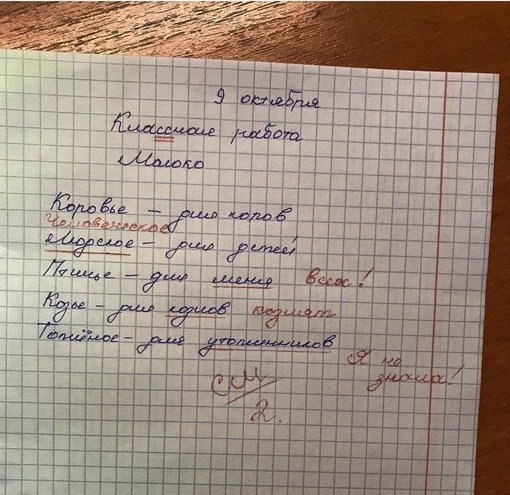 9 октября
Классная работа
Молоко
Коровье – для коров
Человеческое
Людское – для детей
Птичье – для меня всех!
Козье – для козлов козлят
Топлёное – для утопленников
Я не
знала!
См
2.